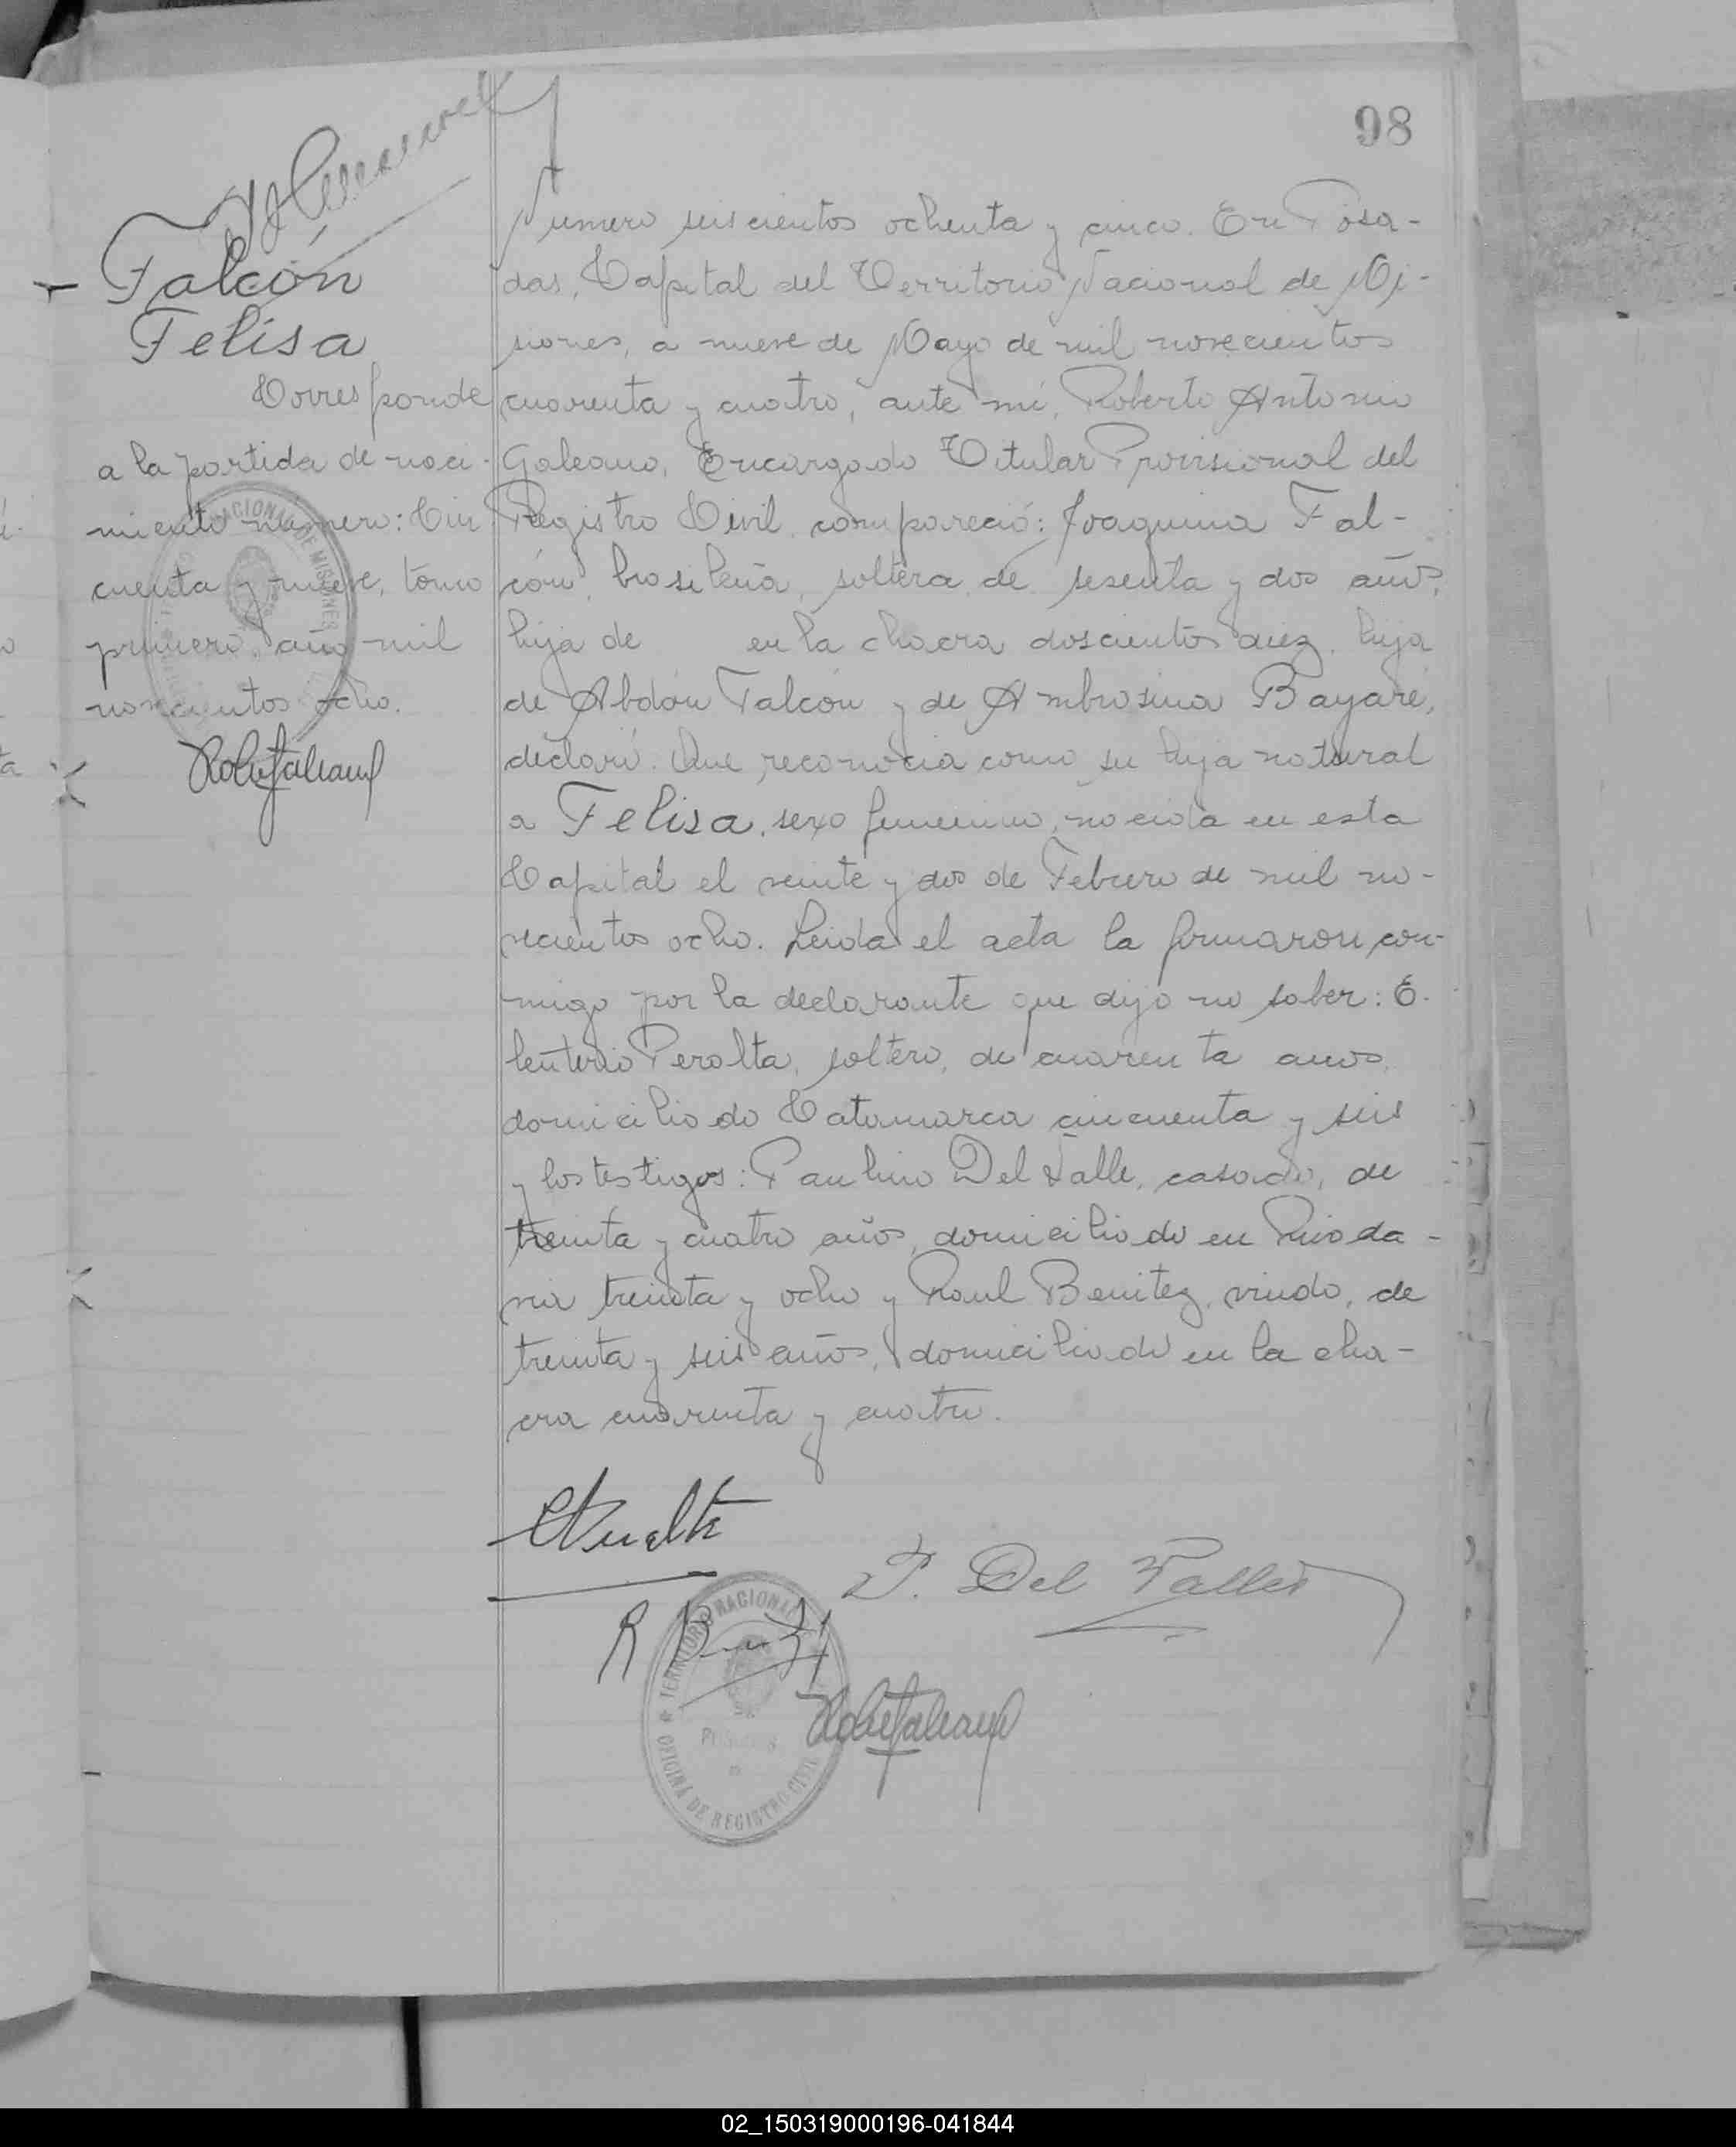 98
Falcón
Felisa
Corresponde
a la partida de naci-
miento número: Cin
cuenta y nueve, tomo
primero, año mil
novecientos ocho.
Numero seiscientos ochenta y cinco. En Posa-
das, Capital del Territorio Nacional de Mi-
siones, a nueve de Mayo de mil novecientos
cuarenta y cuatro, ante mi, Roberto Antonio
Galeano, Encargado Titular Provisional del
Registro Civil, compareció: Joaquina Fal-
cón, brasileña, soltera, de sesenta y dos años,
hija de en la chacra doscientos diez, hija
de Abdón Falcón y de Ambrosina Bayare,
declaró: Que reconocia como su hija natural
a Felisa, sexo femenino, nacida en esta
Capital el veinte y dos de Febrero de mil no-
vecientos ocho. Leida el acta la firmaron con-
migo por la declarante que dijo no saber: E-
leuterio Peralta, soltero, de cuarenta años,
domiciliado Catamarca cincuenta y seis
y los testigos: Paulino Del Valle, casado, de
treinta y cuatro años, domiciliado en Rivada-
via treinta y ocho y Raul Benitez, viudo, de
treinta y seis años, domiciliado en la cha-
cra cuarenta y cuatro.
P. Del Valle
TERRITORIO NACIONAL DE MISIONES
POSADAS
OFICINA DE REGISTRO CIVIL
02_150319000196-041844